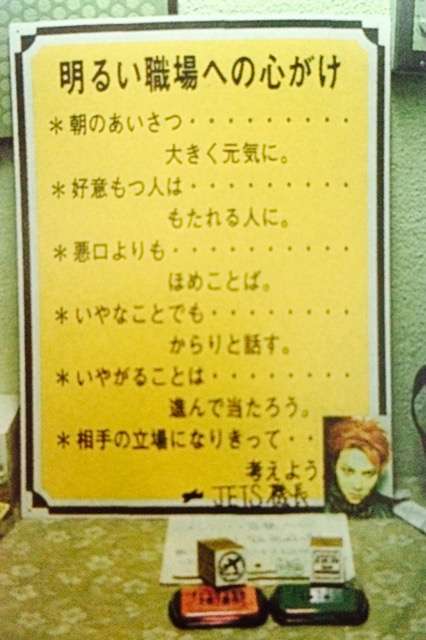 明るい職場への心がけ
＊朝のあいさつ・・・・・・・・・
大きく元気に。
＊好意もつ人は・・・・・・・・・
もたれる人に。
＊悪口よりも・・・・・・・・・・
ほめことば。
＊いやなことでも・・・・・・・・
からりと話す。
＊いやがることは・・・・・・・・
進んで当たろう。
＊相手の立場になりきって・・
考えよう
JETS 機長